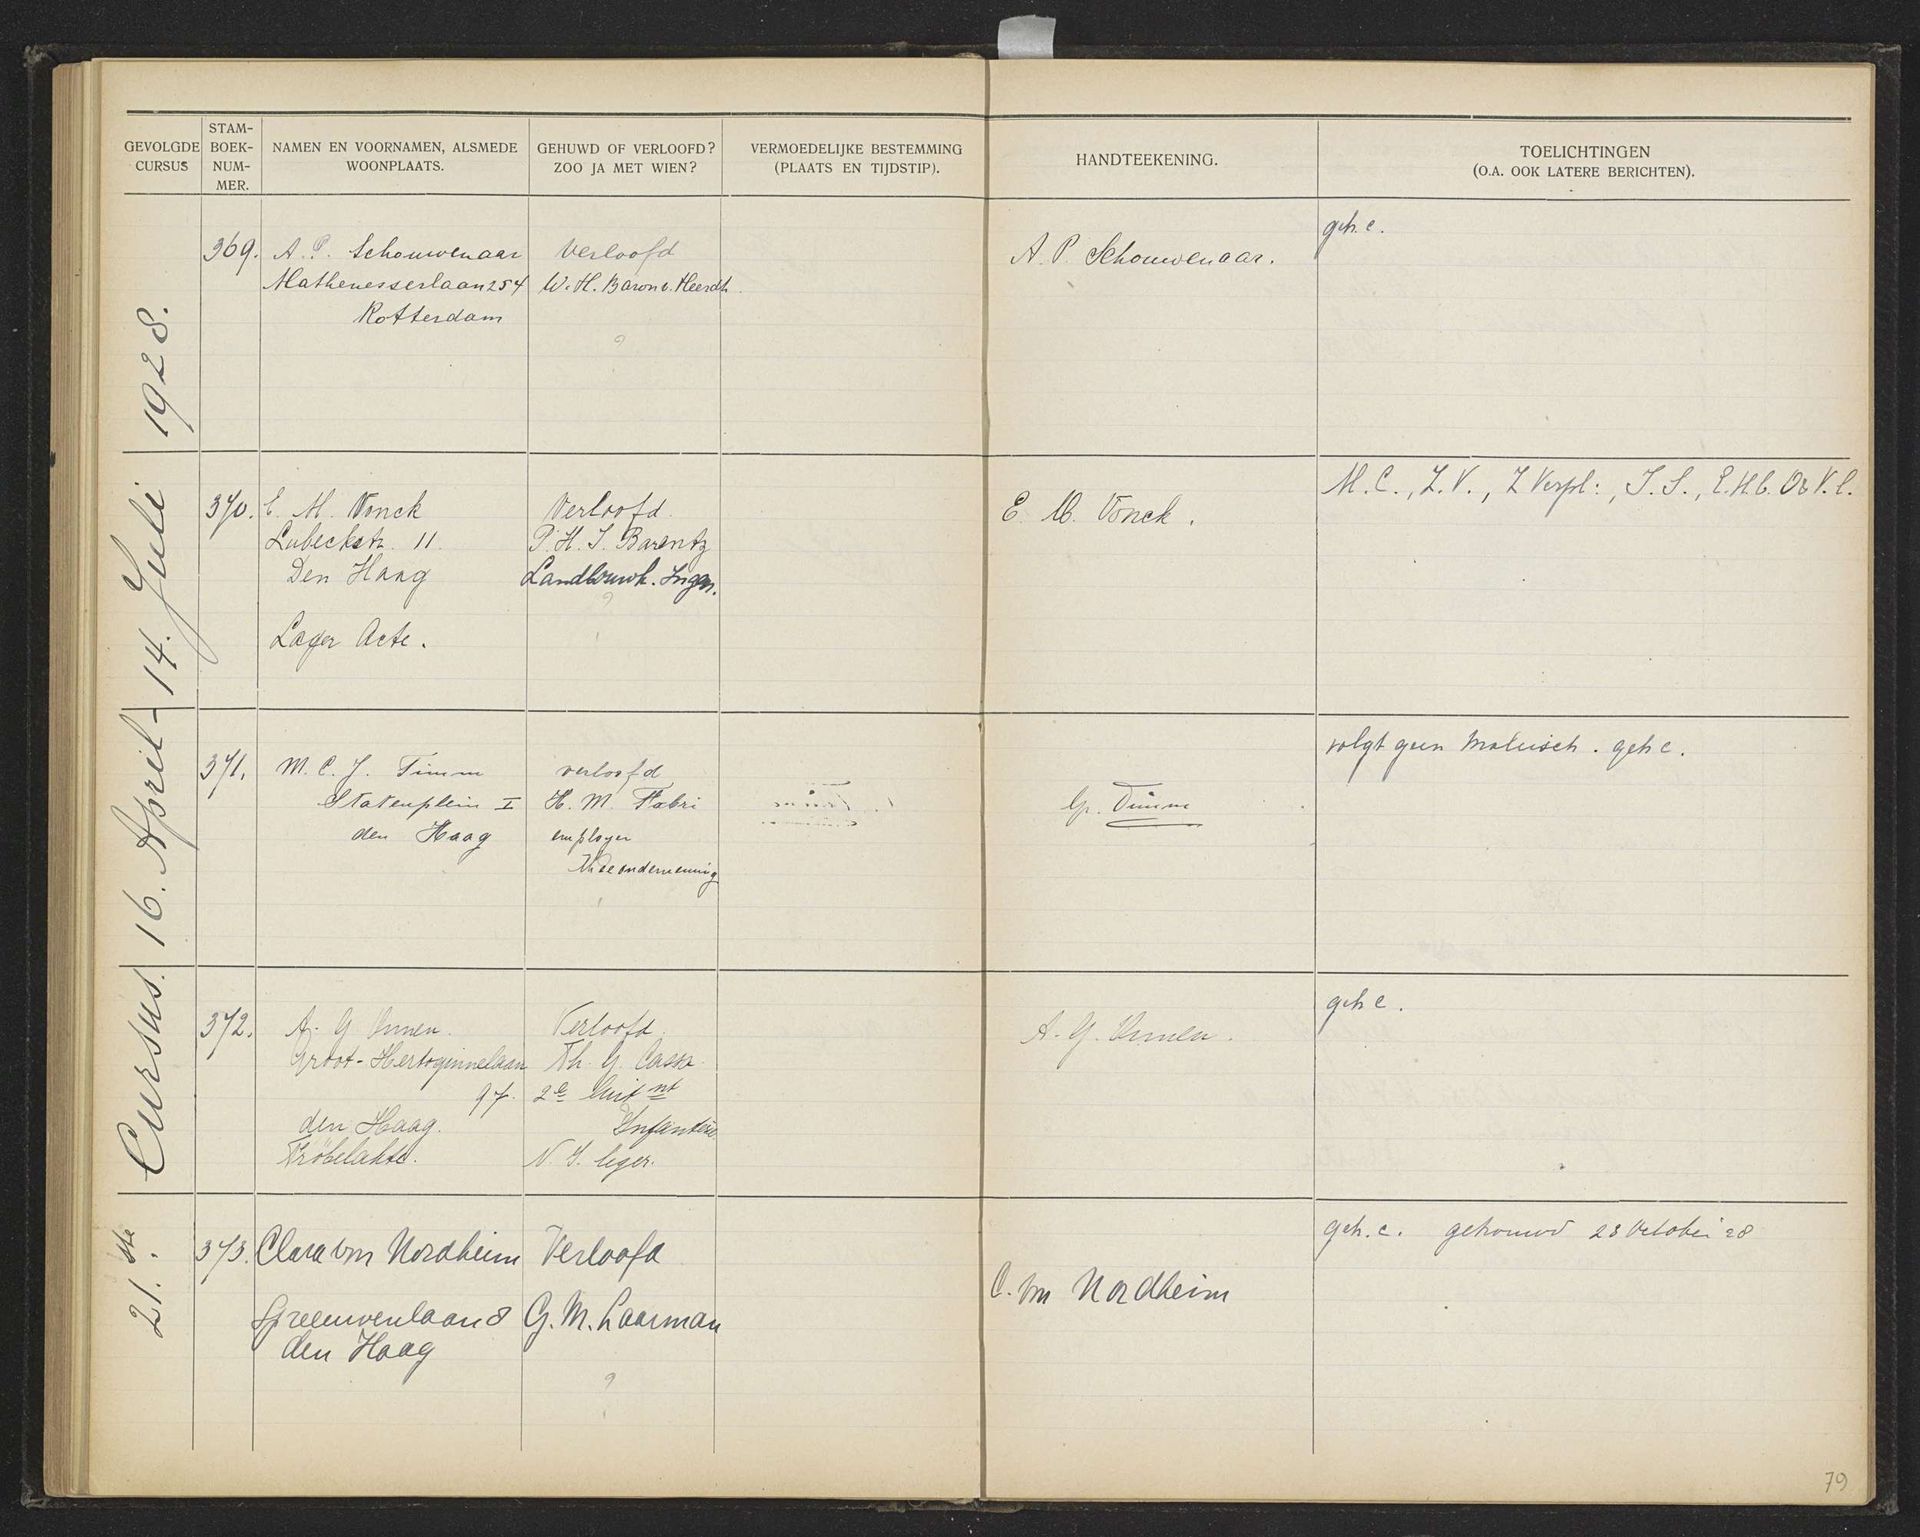 GEVOLGDE CURSUS
STAM-BOEK-NUM-MER.
NAMEN EN VOORNAMEN, ALSMEDE WOONPLAATS.
GEHUWD OF VERLOOFD? ZOO JA MET WIEN?
VERMOEDELIJKE BESTEMMING (PLAATS EN TIJDSTIP).
HANDTEEKENING.
TOELICHTINGEN (O.A. OOK LATERE BERICHTEN).
21.ste Cursus. 16. April - 14. Juli 1928.
369.
A. P. Schouwenaar
Mathenesserlaan 254
Rotterdam
Verloofd
W. H. Baron v. Heerdt
?
A. P. Schouwenaar.
geh. c.
370.
E. M. Vonck
Lubeckstr. 11.
Den Haag
Lager Acte.
Verloofd
P. H. J. Barentz
Landbouwk. Ingen.
?
E. M. Vonck.
M. C., Z. V., Z Verpl:, T. S., E.H.b. Or V. l.
371.
M. C. J. Timm
Statenplein I
den Haag
verloofd
H. M. Fabri
employer
Theeonderneming
Timm
volgt geen Maleisch. geh c.
372.
A. G.
Groot-Hertoginnelaan
97.
den Haag.
Fröbelakte.
Verloofd.
Th. G.
2e luit nt
Infanterie
N. I. leger.
A. G.
geh c.
373.
Clara von Nordheim
Spreeuwenlaan 8
den Haag
Verloofd
G. M. Laarman
?
C. von Nordheim
geh. c. getrouwd 23 October 28
79